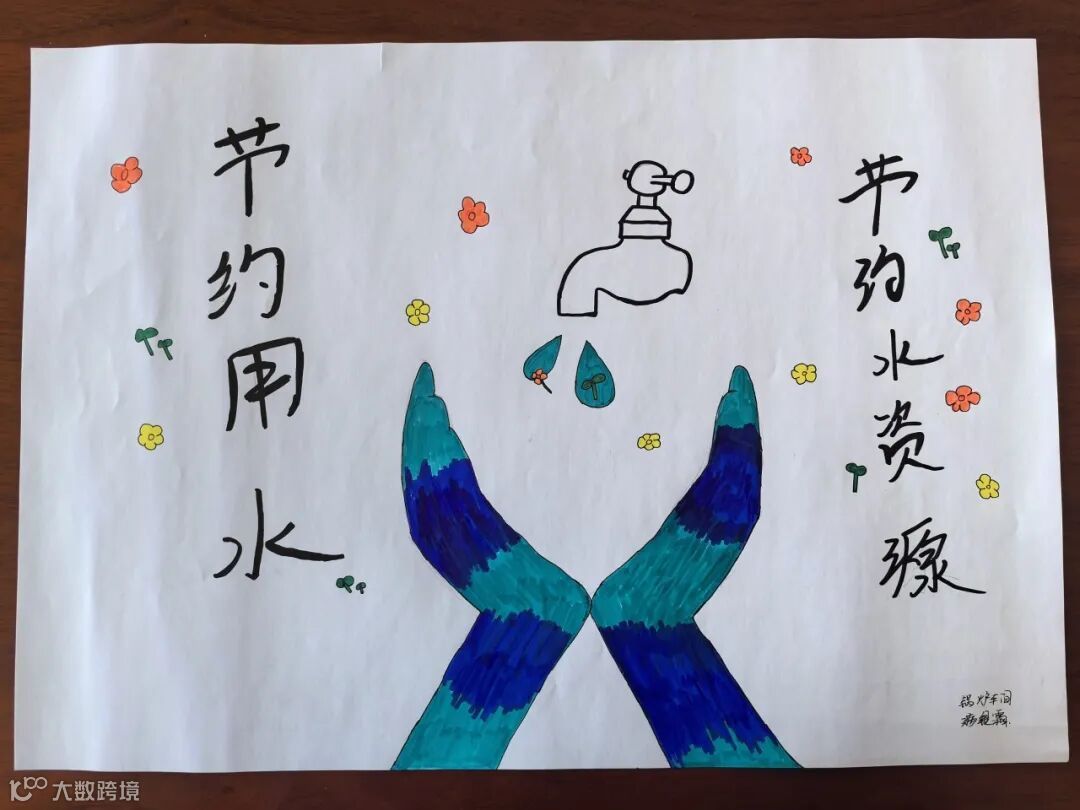 节约用水
节约水资源
锅炉车间
大数跨境